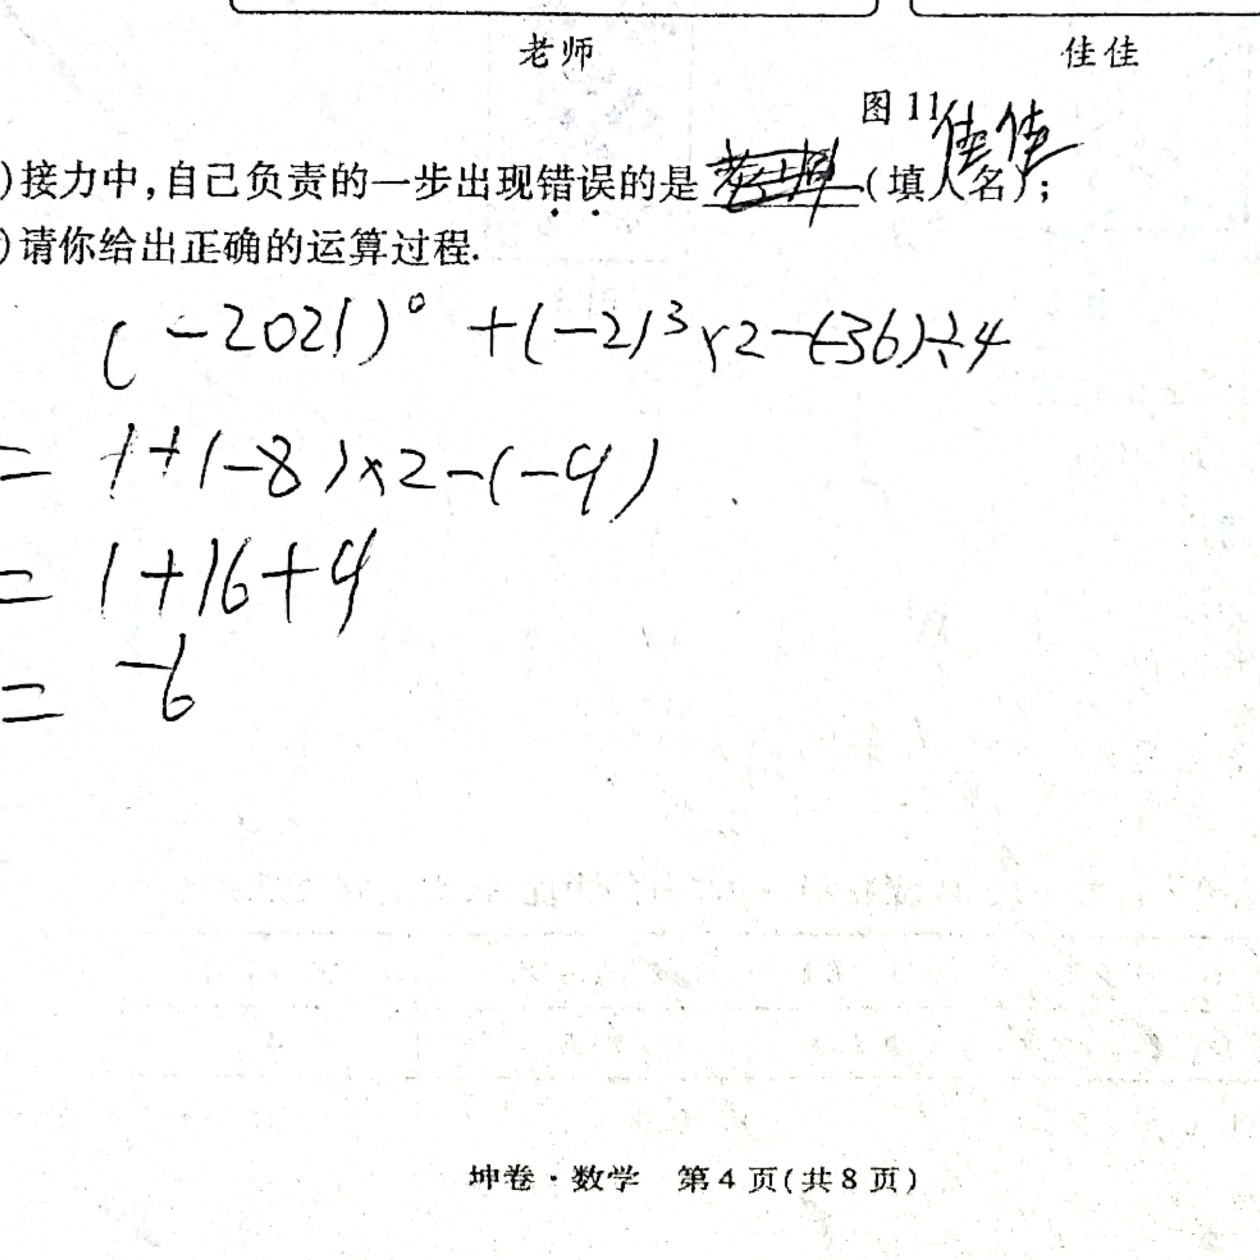 老师 佳佳
图 11
佳佳
)接力中,自己负责的一步出现错误的是 (填人名);
)请你给出正确的运算过程.
(-2021)⁰+(-2)³×2-(-36)÷4
= 1+(-8)×2-(-9)
= 1+16+9
= -6
坤卷·数学 第4页(共8页)